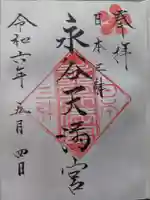 奉拝
日本三躰
永谷天満宮
令和六年 五月 四日